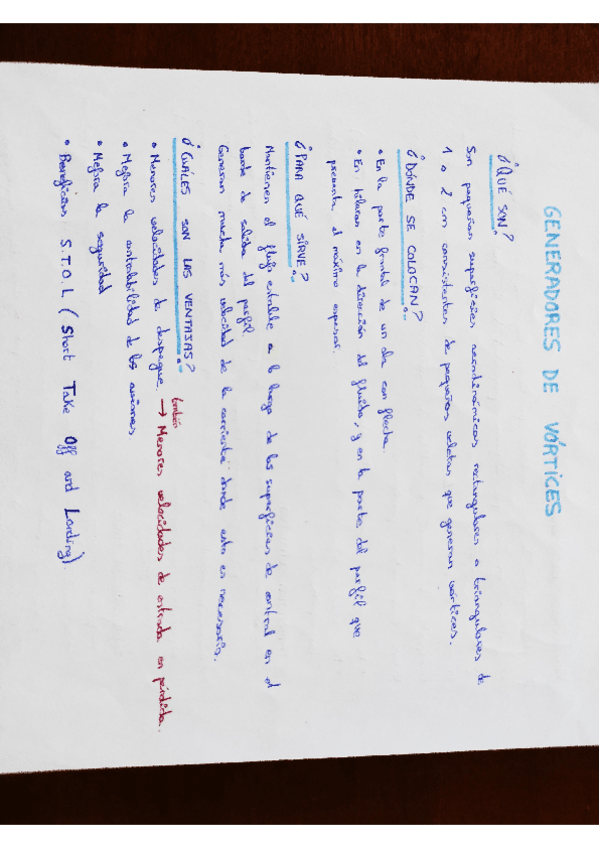 GENERADORES DE VÓRTICES
¿QUÉ SON?
Son pequeñas superficies aerodinámicas rectangulares o triangulares de
1 o 2 cm consistentes de pequeñas aletas que generan vórtices.
¿DÓNDE SE COLOCAN?
• En la parte frontal de un ala con flecha.
• En hileras en la dirección del fluido, y en la parte del perfil que
presenta el máximo espesor.
¿PARA QUÉ SIRVE?
Mantienen el flujo estable a lo largo de las superficies de control en el
borde de salida del perfil.
Generan mucha más velocidad de la corriente donde esta es necesaria.
¿CUÁLES SON LAS VENTAJAS?
• Menores velocidades de despegue. también → Menores velocidades de entrada en pérdida.
• Mejora la controlabilidad de los aviones
• Mejora la seguridad
• Beneficios S.T.O.L (Short Take Off and Landing)